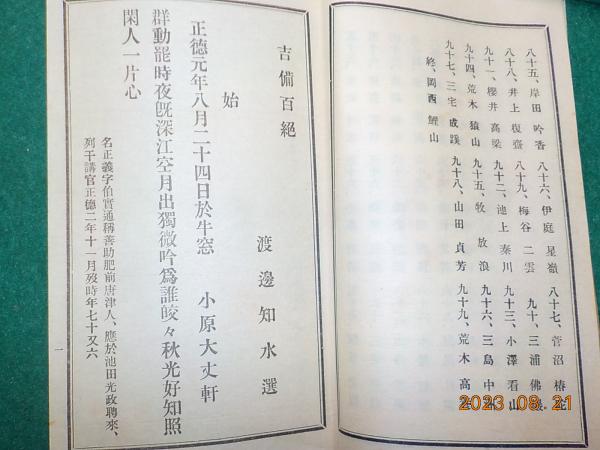 八十五、岸田吟香 八十六、伊庭星嶺 八十七、菅沼椿
八十八、井上復齋 八十九、梅谷二雲 九十、三浦佛
九十一、櫻井高梁 九十二、池上秦川 九十三、小澤看山
九十四、荒木猿山 九十五、牧放浪 九十六、三島中
九十七、三宅成蹊 九十八、山田貞芳 九十九、荒木高
終、岡西鯉山
吉備百絕
渡邊知水選
始
正德元年八月二十四日於牛窓 小原大丈軒
群動罷時夜既深江空月出獨微吟爲誰皎々秋光好知照
閑人一片心
名正義字伯實通稱善助肥前唐津人、應於池田光政聘來、
列干講官正德二年十一月歿時年七十又六
一
2023 08 21